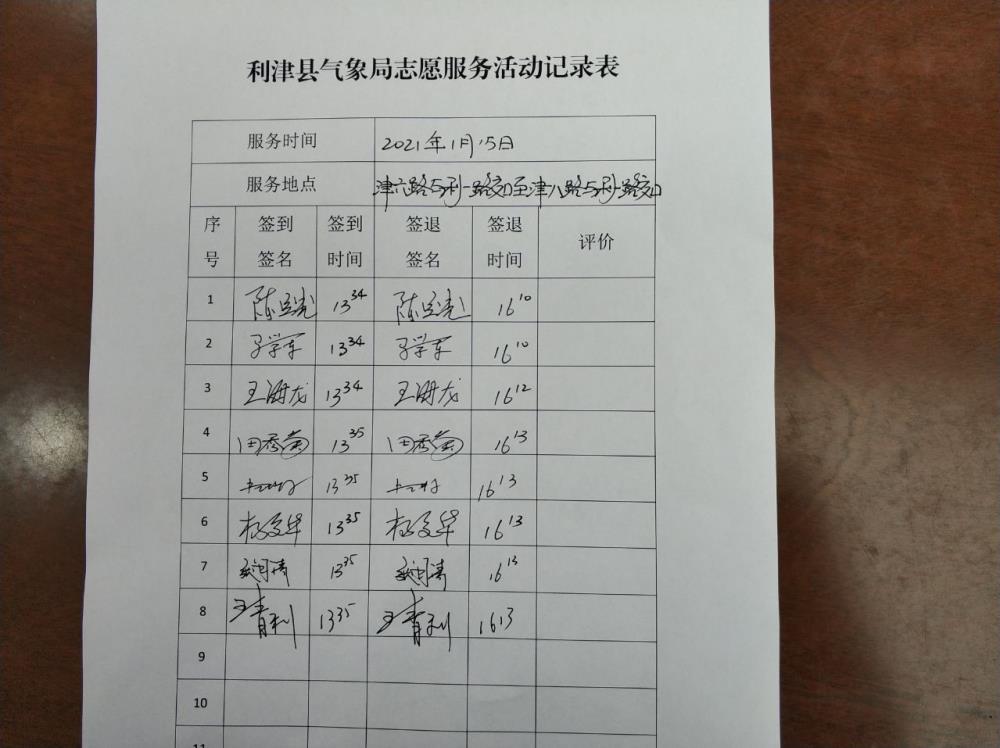 利津县气象局志愿服务活动记录表
服务时间 2021年1月15日
服务地点 津六路与利一路交口至津八路与利一路交口
序号 签到签名 签到时间 签退签名 签退时间 评价
1 13 34 16 10
2 13 34 16 10
3 王海龙 13 34 王海龙 16 12
4 田秀菊 13 35 田秀菊 16 13
5 13 35 16 13
6 13 35 16 13
7 13 35 16 13
8 王青利 13 35 王青利 16 13
9
10
11